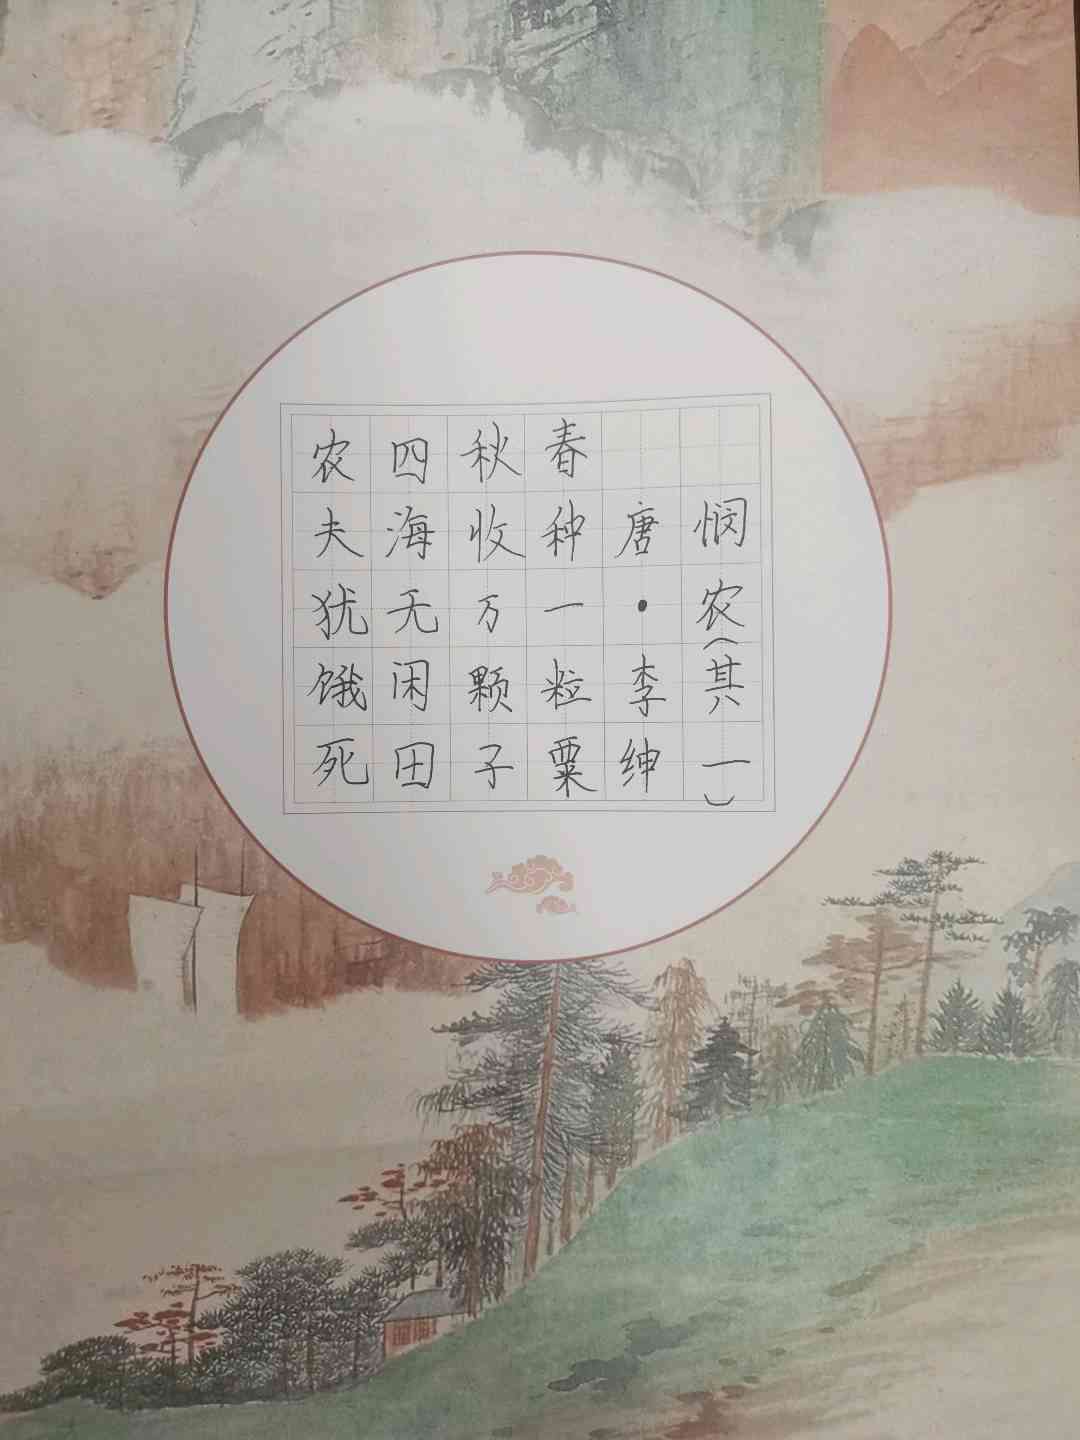 悯农(其一)
唐·李绅
春种一粒粟
秋收万颗子
四海无闲田
农夫犹饿死